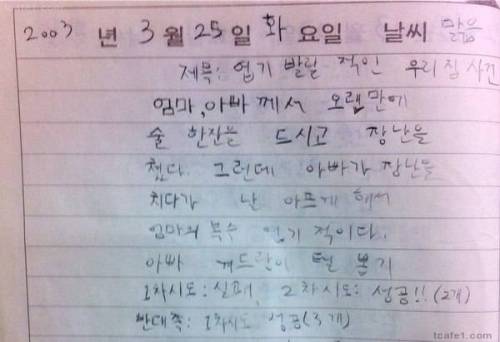 2003 년 3 월 25 일 화 요일 날씨 맑음
제목: 엽기 발랄 적인 우리 집 사건
엄마, 아빠 께서 오랜만에
술 한잔을 드시고 장난을
쳤다. 그런데 아빠가 장난을
치다가 난 아프게 해서
엄마의 복수 엽기 적이다.
아빠 겨드랑이 털 뽑기
1차시도: 실패, 2차시도: 성공!! (2개)
반대쪽: 1차시도 성공(3개)
tcafe1.com